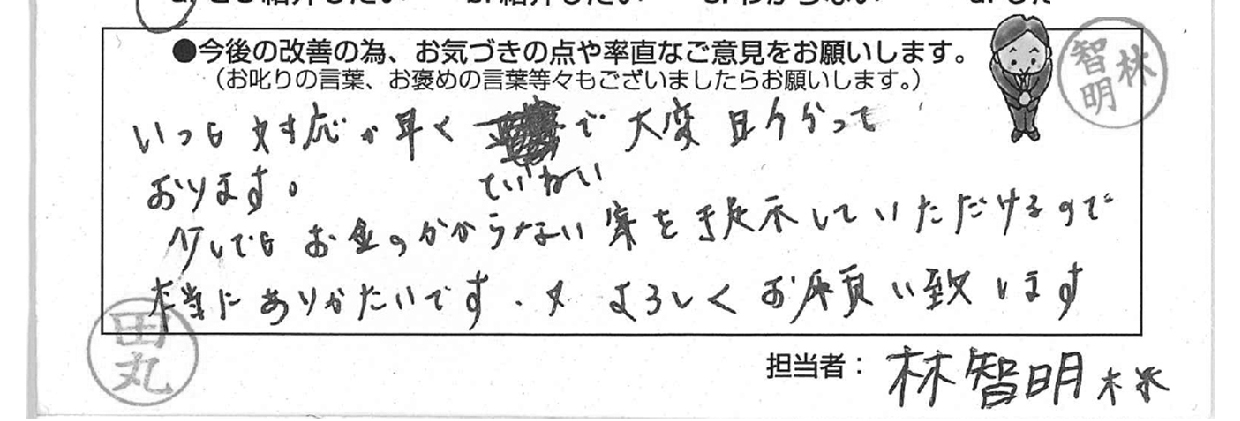 ●今後の改善の為、お気づきの点や率直なご意見をお願いします。
(お叱りの言葉、お褒めの言葉等々もございましたらお願いします。)
林智明
いつも対応が早く ていねいで大変助かって
おります。
少しでもお金のかからない案を提示していただけるので
本当にありがたいです。又よろしくお願い致します
田丸
担当者: 林智明 様